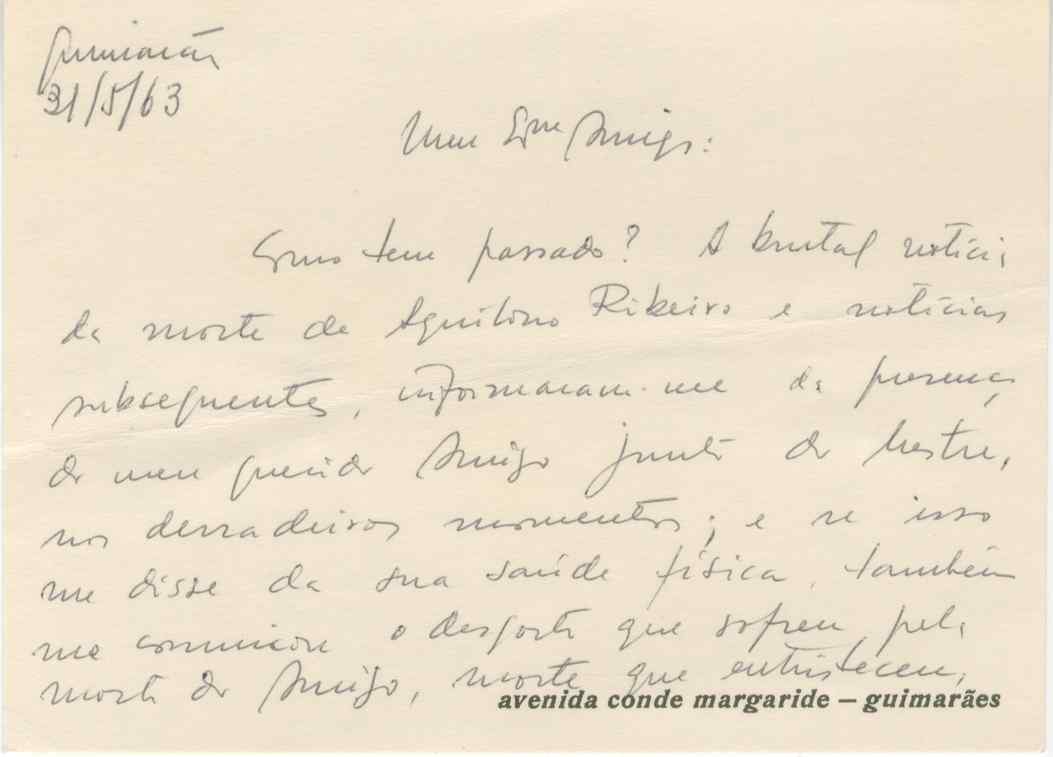 Guimarães
31/5/63
Meu Exmo Amigo:
Como tem passado? A brutal notícia
da morte de Aquilino Ribeiro e notícias
subsequentes, informaram-me da presença
do meu querido Amigo junto do Mestre,
nos derradeiros momentos; e se isso
me disse da sua saúde física, também
me comunicou o desgosto que sofreu, pela
morte do Amigo, morte que entristeceu,
avenida conde margaride – guimarães